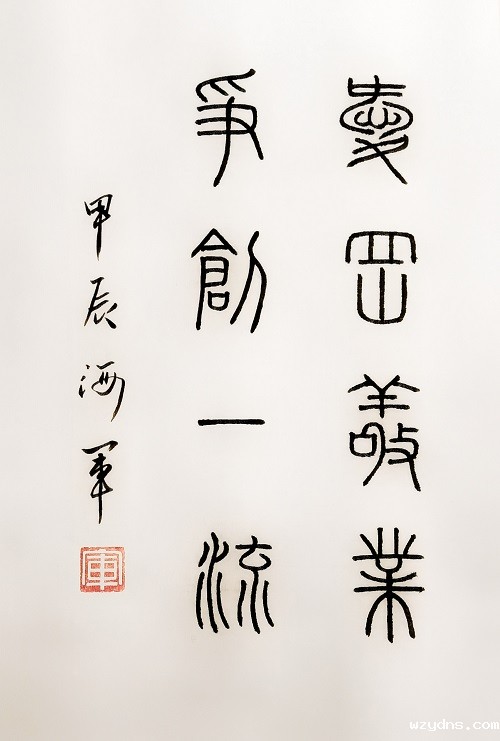 愛岡敬業
爭創一流
甲辰海軍
軍
wzydns.com